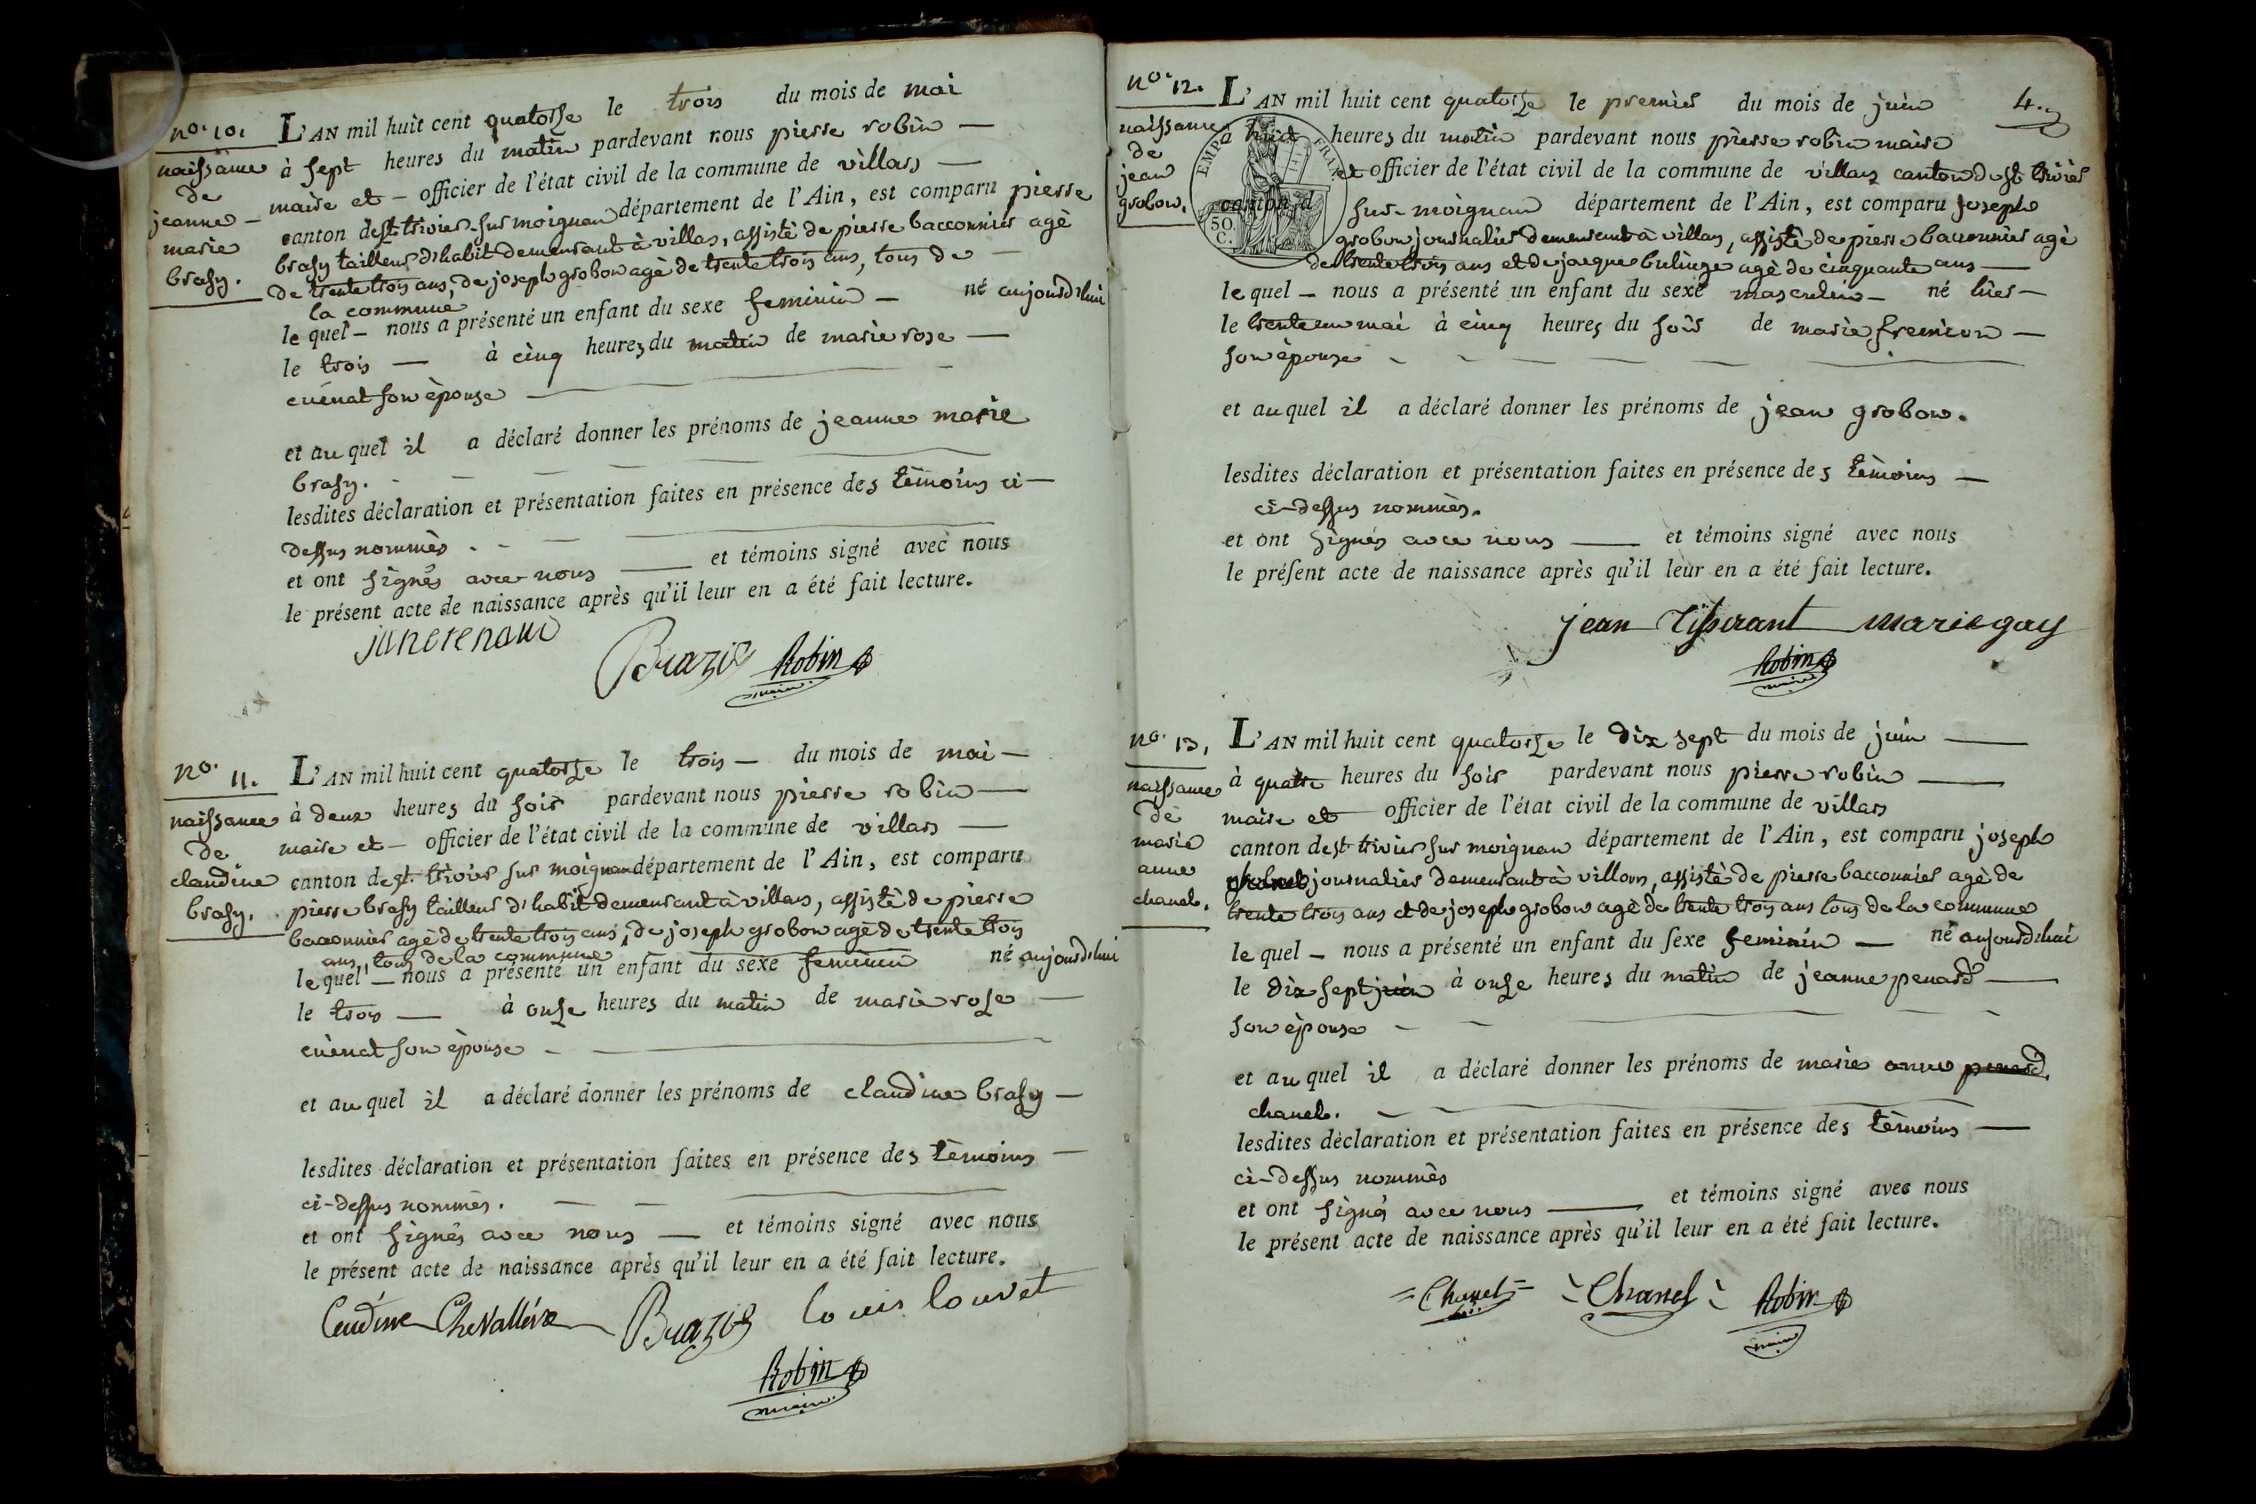 no. 10.
naissance
de
jeanne
marie
brasy.
L'AN mil huit cent quatorze le trois du mois de mai
à sept heures du matin pardevant nous pierre robin
maire et officier de l'état civil de la commune de villars
canton de st trivier sur moignan département de l'Ain, est comparu pierre
brasy tailleur d'habit demeurant à villars, assistè de pierre bacconnier agè
de trente trois ans, de joseph grobon agè de trente trois ans, tous de
la commune
lequel nous a présenté un enfant du sexe feminin né aujourd'hui
le trois à cinq heures du matin de marie rose
cuénat son èpouse
et auquel il a déclaré donner les prénoms de jeanne marie
brasy.
lesdites déclaration et présentation faites en présence des tèmoins ci-
dessus nommès.
et ont signés avec nous et témoins signé avec nous
le présent acte de naissance après qu'il leur en a été fait lecture.
Brazis Robin
maire
no. 11.
naissance
de
claudine
brasy.
L'AN mil huit cent quatorze le trois du mois de mai
à deux heures du soir pardevant nous pierre robin
maire et officier de l'état civil de la commune de villars
canton de st. trivier sur moignan département de l'Ain, est comparu
pierre brasy tailleur d'habit demeurant à villars, assistè de pierre
bacconnier agè de trente trois ans, de joseph grobon agè de trente trois
ans, tous de la commune
lequel nous a présenté un enfant du sexe feminin né aujourd'hui
le trois à onze heures du matin de marie rose
cuènat son èpouse
et auquel il a déclaré donner les prénoms de claudine brasy
lesdites déclaration et présentation faites en présence des tèmoins
ci-dessus nommès.
et ont signés avec nous et témoins signé avec nous
le présent acte de naissance après qu'il leur en a été fait lecture.
Brazis louis louvet
Robin
maire
4.
no. 12.
naissance
de
jean
grobon.
EMP. FRAN.
50.
C.
L'AN mil huit cent quatorze le premier du mois de juin
à huit heures du matin pardevant nous pierre robin maire
et officier de l'état civil de la commune de villars canton de st trivier
canton d sur-moignan département de l'Ain, est comparu joseph
grobon journalier demeurant à villars, assistè de pierre bacconnier agè
de trente trois ans et de jacque agè de cinquante ans
lequel nous a présenté un enfant du sexe masculin né hier
le trente un mai à cinq heures du soir de marie
son èpouse
et auquel il a déclaré donner les prénoms de jean grobon.
lesdites déclaration et présentation faites en présence des tèmoins
ci-dessus nommès.
et ont signés avec nous et témoins signé avec nous
le présent acte de naissance après qu'il leur en a été fait lecture.
jean Tisserant marie gay
Robin
maire
no. 13.
naissance
de
marie
anne
chanel.
L'AN mil huit cent quatorze le dix sept du mois de juin
à quatre heures du soir pardevant nous pierre robin
maire et officier de l'état civil de la commune de villars
canton de st trivier sur moignan département de l'Ain, est comparu joseph
journalier demeurant à villars, assistè de pierre bacconnier agè de
trente trois ans et de joseph grobon agè de trente trois ans tous de la commune
lequel nous a présenté un enfant du sexe feminin né aujourd'hui
le dix sept juin à onze heures du matin de jeanne penard
son èpouse
et auquel il a déclaré donner les prénoms de marie anne penard.
chanel.
lesdites déclaration et présentation faites en présence des tèmoins
ci-dessus nommès
et ont signés avec nous et témoins signé avec nous
le présent acte de naissance après qu'il leur en a été fait lecture.
Chanel Chanel Robin
maire